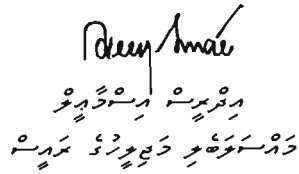 އިދްރީސް އިސްމާޢީލް
މައްސަލަބެލި މަޖިލީހުގެ ރައީސް